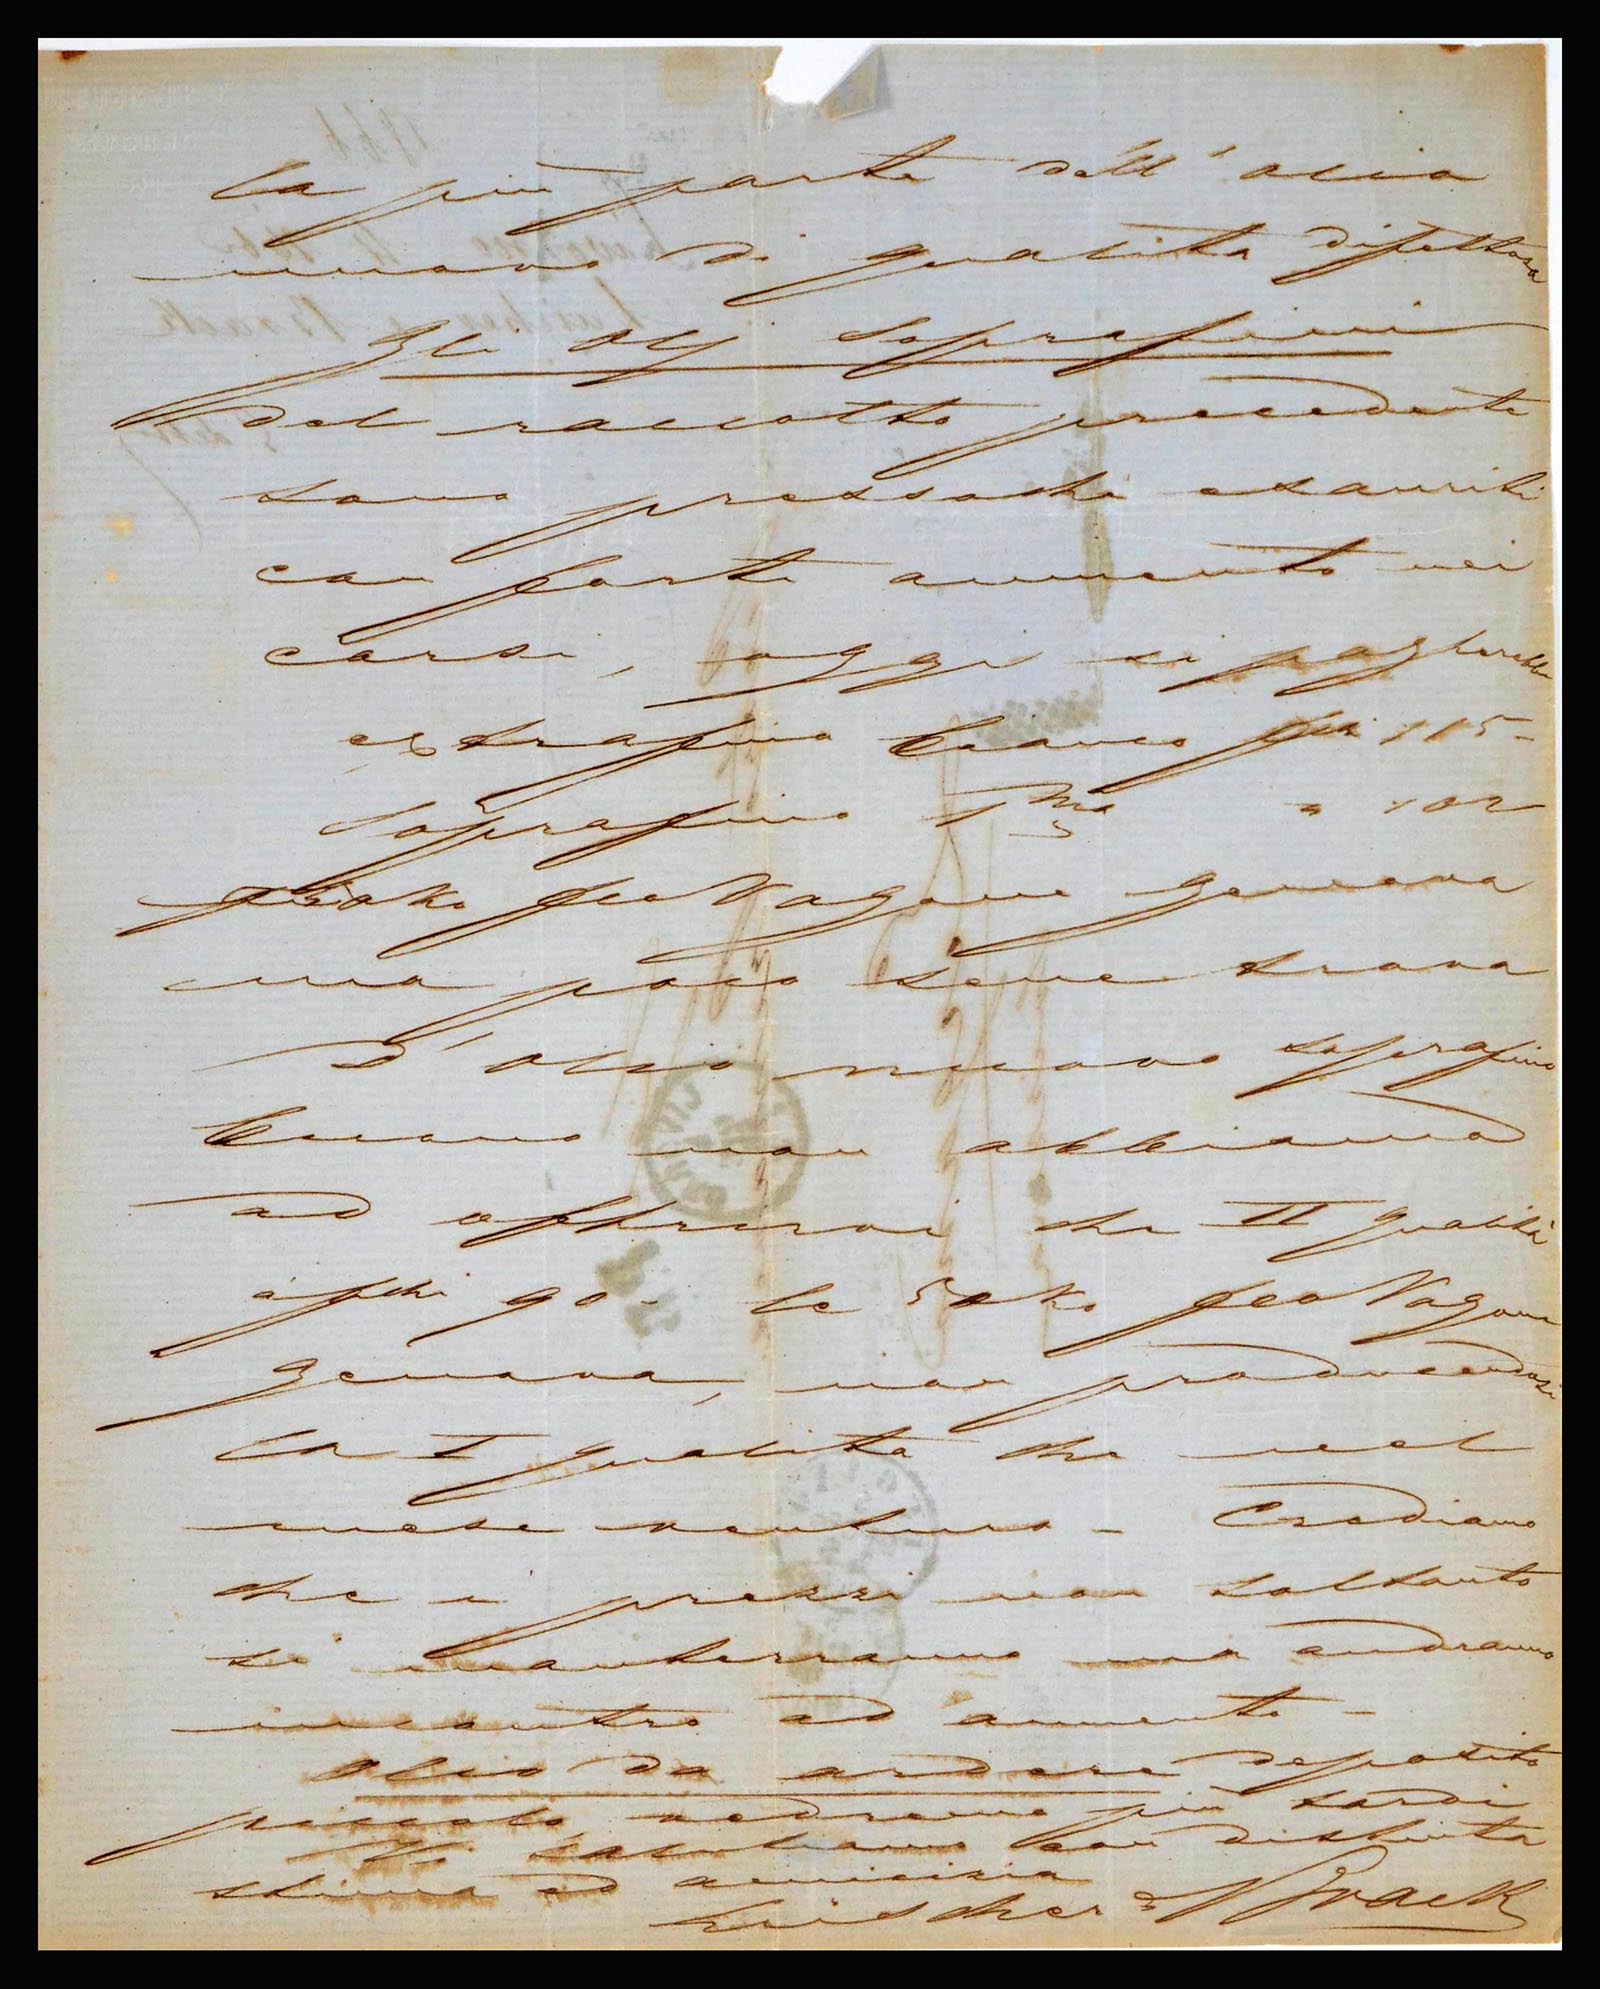 la più parte dell'olio
nuovo di qualità difettosa
Gli olj soprafini
del raccolto precedente
sono pressochè esauriti
con forte aumento nei
corsi, oggi si pagherebbe
extrafino bianco fchi 115-
soprafino 1mo " 102
50 Ko fco Vagone Genova
ma poco sene trova
D'olio nuovo soprafino
buono non abbiamo
ad offrirvi che II qualità
a fchi 90- le 50 Ko fco Vagone
Genova, non producendosi
la I qualità che nel
mese venturo - Crediamo
che i prezzi non soltanto
si manterranno ma andranno
incontro ad aumento -
Olio da ardere deposito
piccolo, vedremo più tardi
Vi salutiamo con distinta
stima ed amicizia
Brack